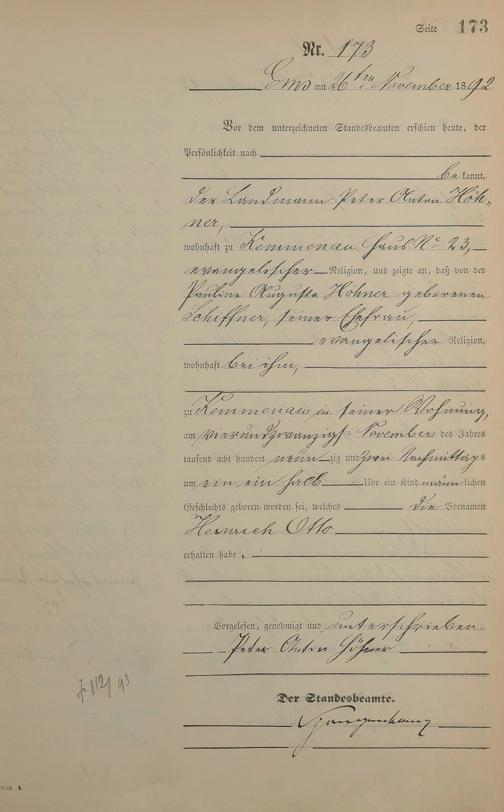 Seite 173
Nr. 173
Ems am 26ten November 1892
Vor dem unterzeichneten Standesbeamten erschien heute, der
Persönlichkeit nach
bekannt,
der Landmann Peter Anton Höh-
ner,
wohnhaft zu Kemmenau Haus No 23,
evangelischer Religion, und zeigte an, daß von der
Pauline Augusta Höhner geborenen
Schiffner, seiner Ehefrau,
evangelischer Religion,
wohnhaft bei ihm,
zu Kemmenau in seiner Wohnung,
am vierundzwanzigst November des Jahres
tausend acht hundert neunzig und zwei Nachmittags
um ein ein halb Uhr ein Kind männlichen
Geschlechts geboren worden sei, welches die Vornamen
Heinrich Otto
erhalten habe.
Vorgelesen, genehmigt und unterschrieben.
Peter Anton Höhner
Der Standesbeamte.
A.